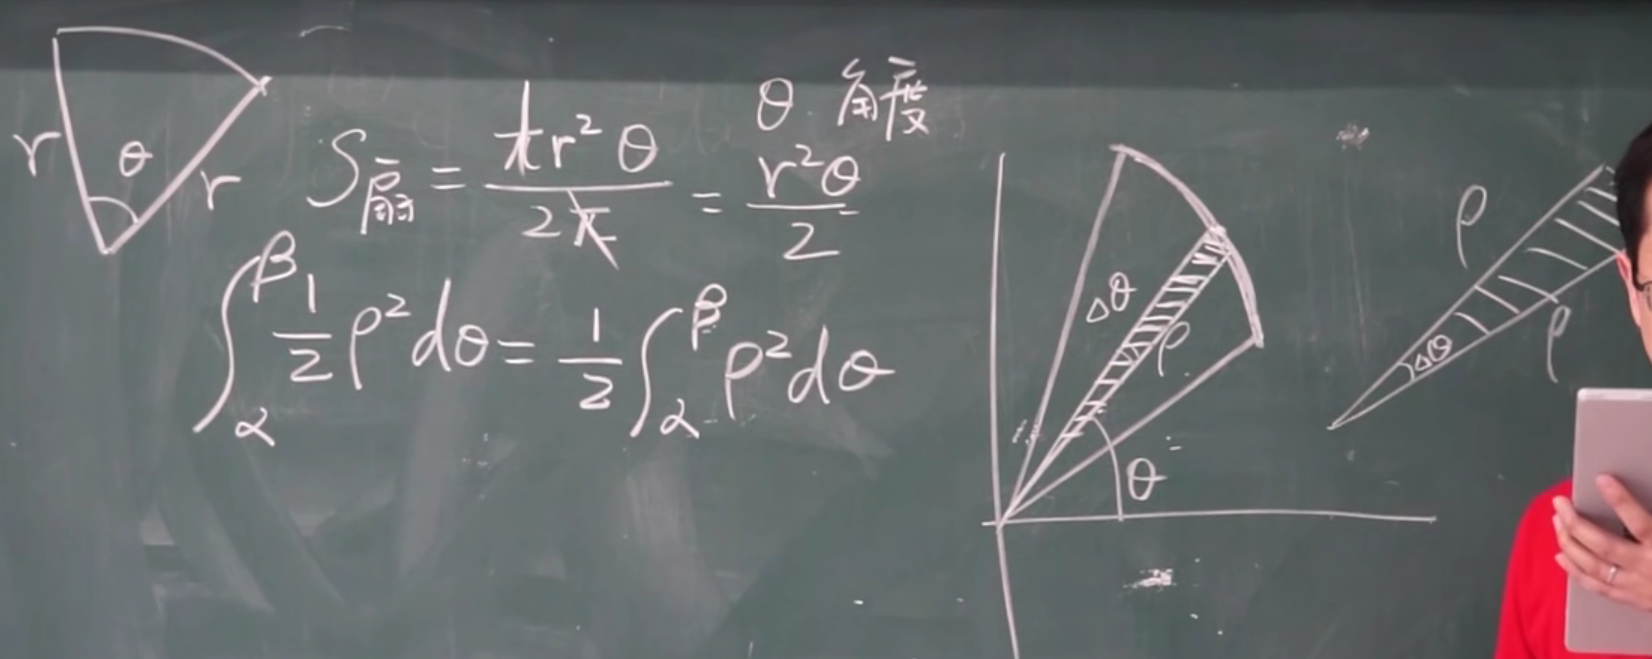 θ 角度
r θ r
S扇 = πr²θ / 2π = r²θ / 2
∫_α^β 1/2 ρ² dθ = 1/2 ∫_α^β ρ² dθ
Δθ ρ
θ
ρ
Δθ ρ